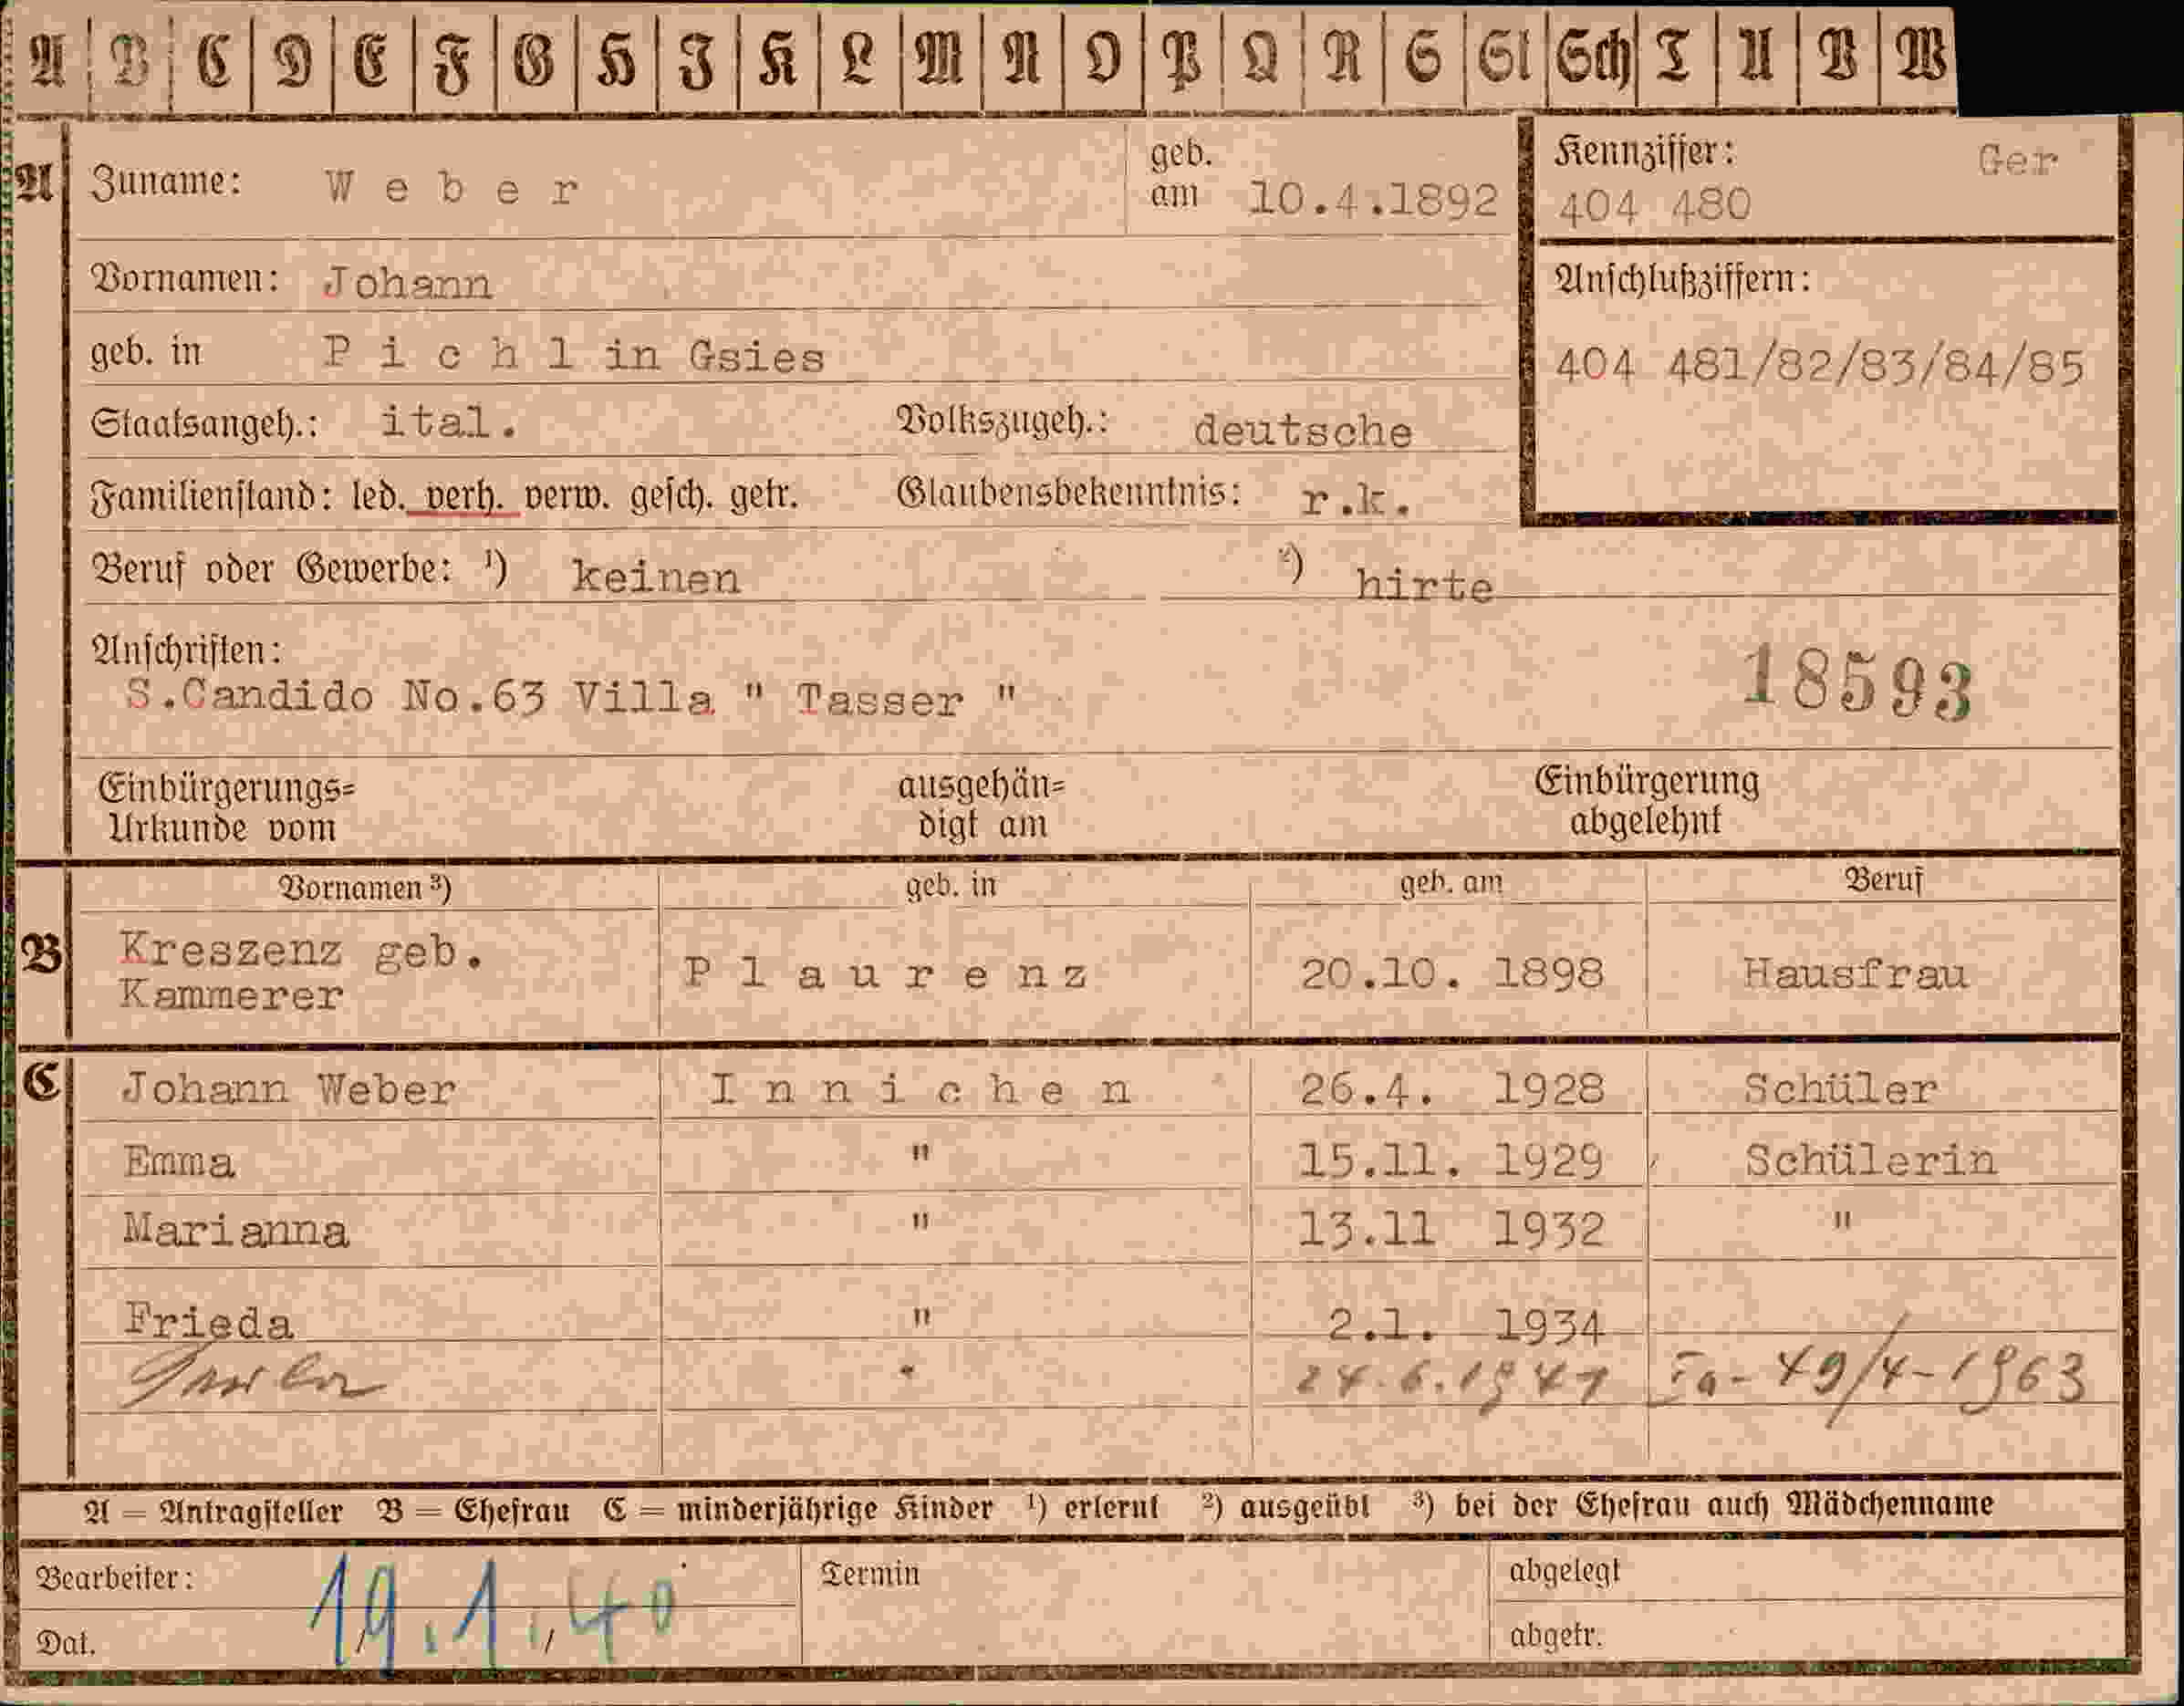 A B C D E F G H I K L M N O P Q R S St Sch T U V W
A Zuname: Weber geb. am 10.4.1892 Kennziffer: Ger
404 480
Vornamen: Johann Anschlußziffern:
geb. in Pichl in Gsies 404 481/82/83/84/85
Staatsangeh.: ital. Volkszugeh.: deutsche
Familienstand: led. verh. verw. gesch. getr. Glaubensbekenntnis: r.k.
Beruf oder Gewerbe: ¹) keinen ²) hirte
Anschriften:
S.Candido No.63 Villa " Tasser " 18593
Einbürgerungs= ausgehän= Einbürgerung
Urkunde vom digt am abgelehnt
Vornamen ³) geb. in geb. am Beruf
B Kreszenz geb. Plaurenz 20.10. 1898 Hausfrau
Kammerer
C Johann Weber Innichen 26.4. 1928 Schüler
Emma " 15.11. 1929 Schülerin
Marianna " 13.11 1932 "
Frieda " 2.1. 1934
" 24.6.1941 49/4-1963
A = Antragsteller B = Ehefrau C = minderjährige Kinder ¹) erlernt ²) ausgeübt ³) bei der Ehefrau auch Mädchenname
Bearbeiter: Termin abgelegt
Dat. 19.1.40 abgetr.